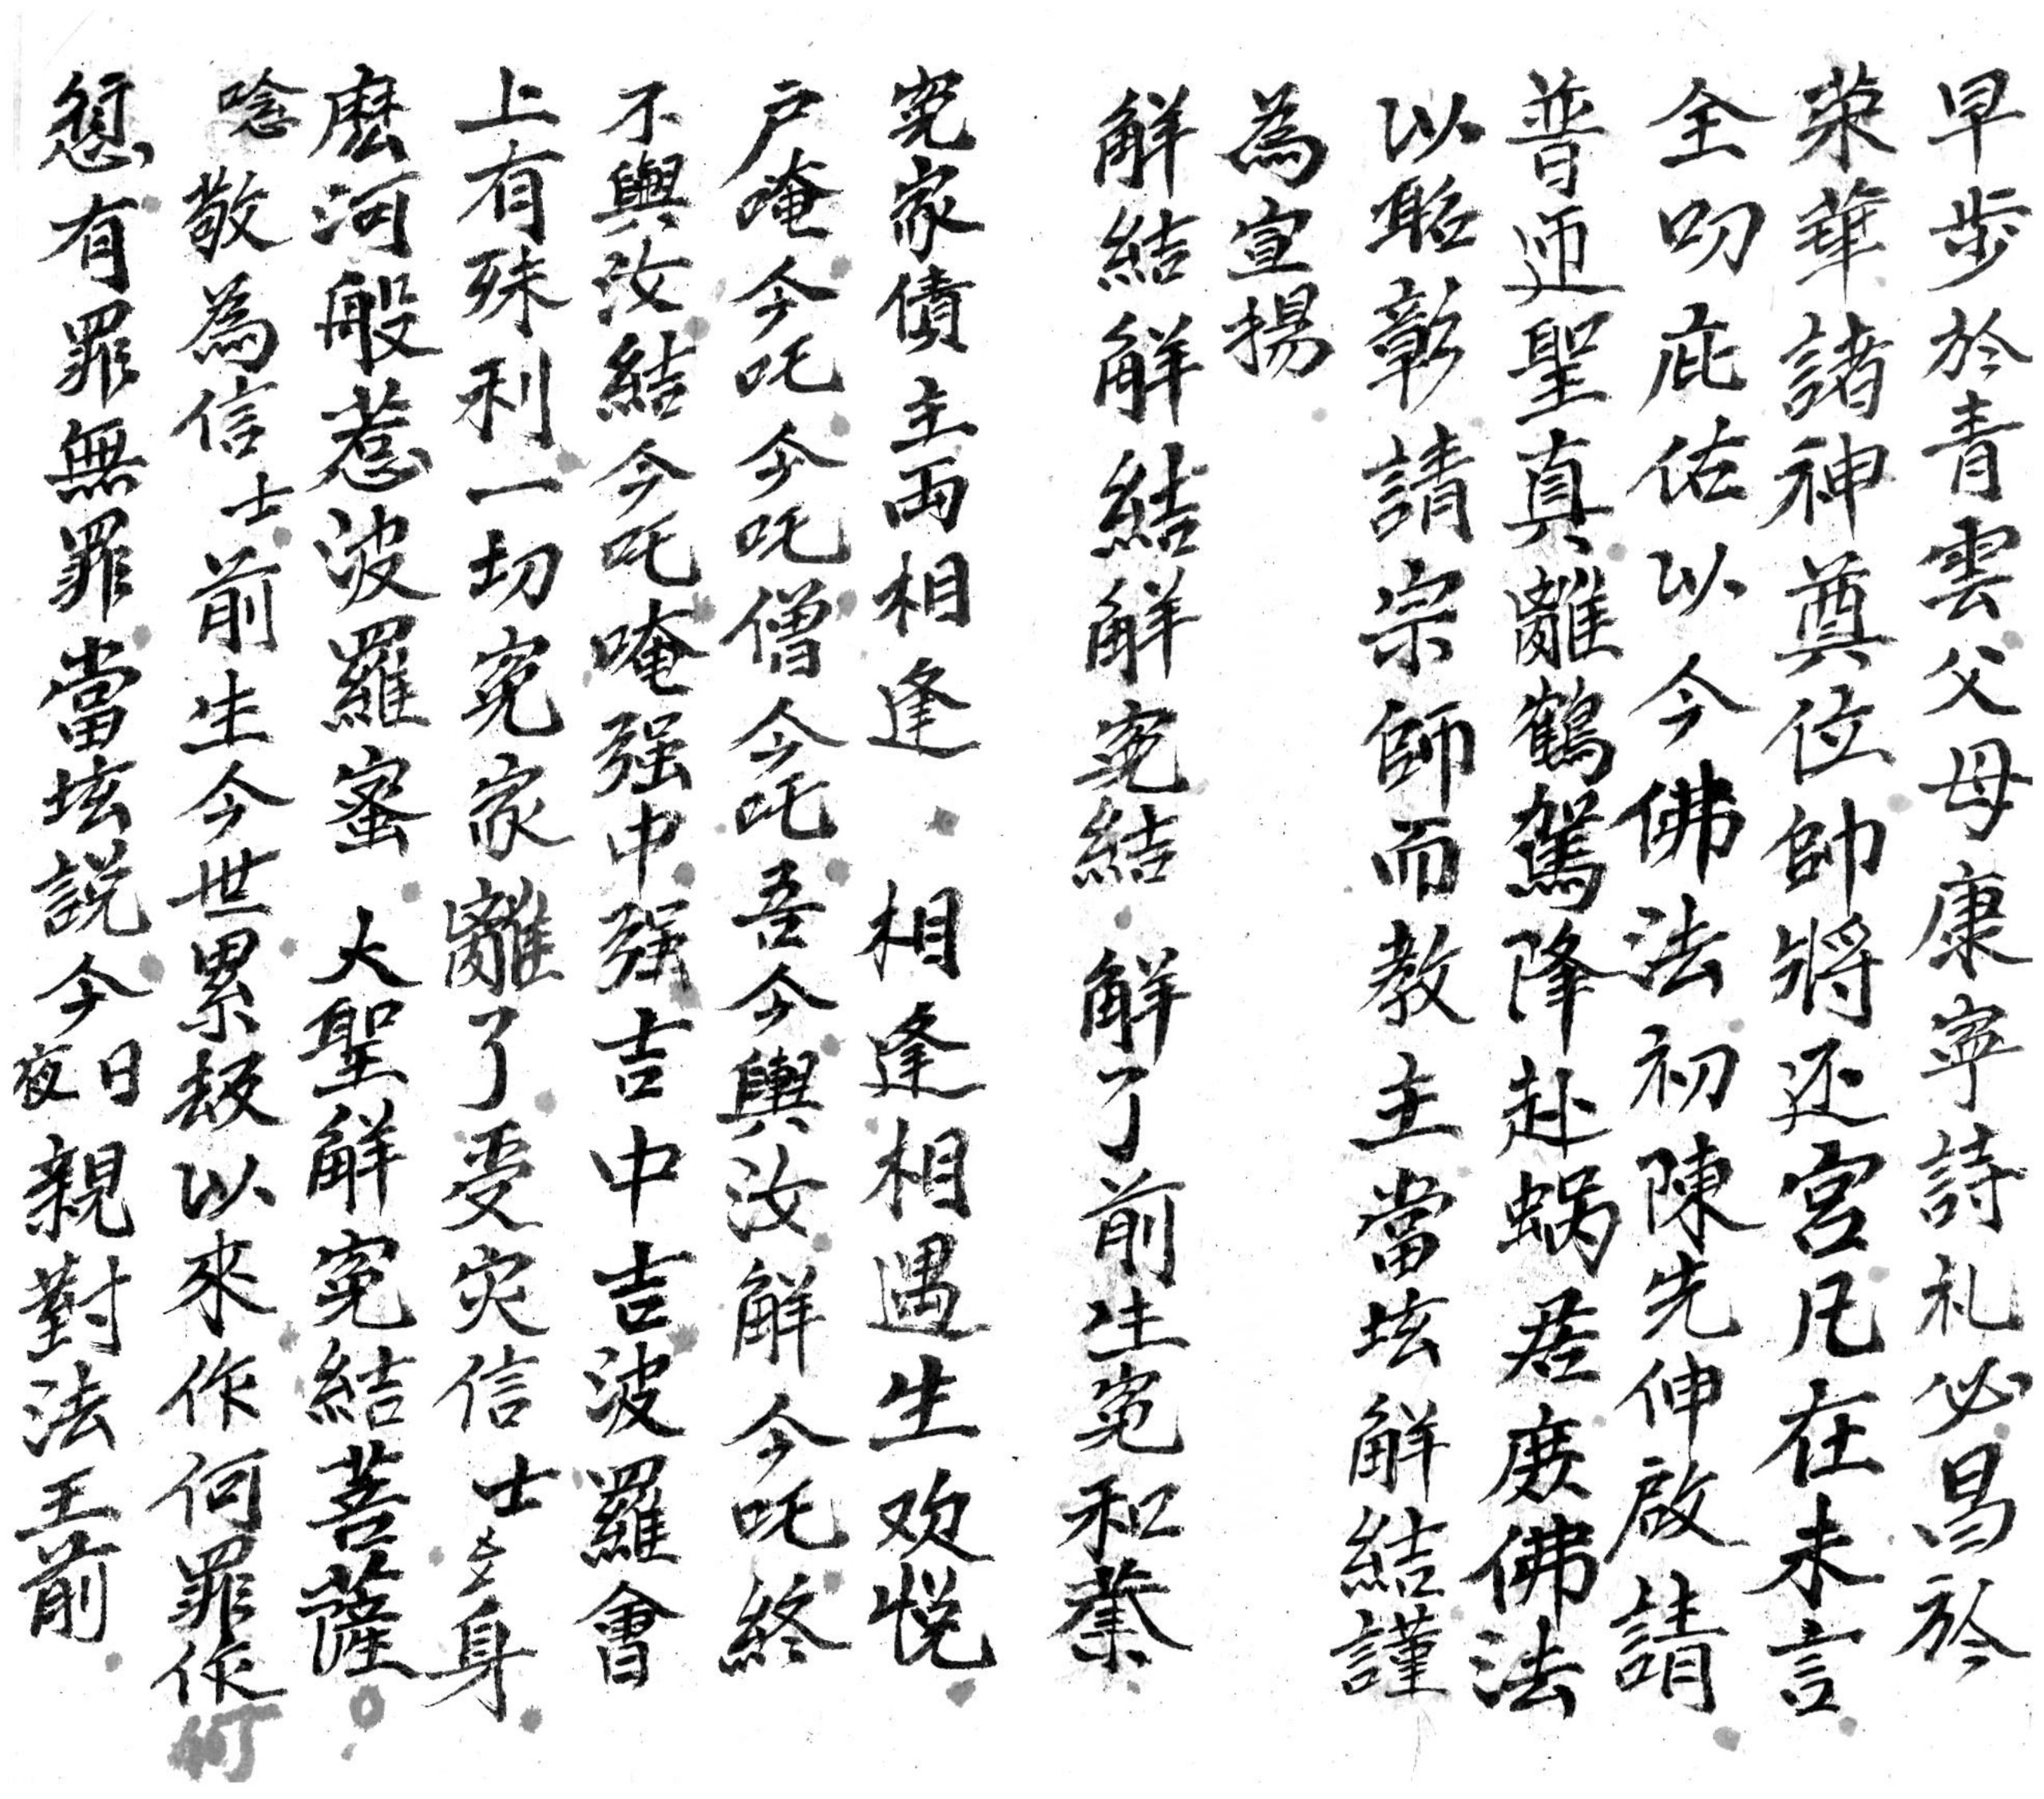 早步於青雲父母康寧詩礼必昌於
荣華諸神奠位帥將还宮凡在未言
全叨庇佑以今佛法初陳先伸啟請
普迊聖真離鶴駕降赴蜗居廒佛法
以昭彰請宗師而教主當垓解結謹
為宣揚
解結解結解冤結解了前生冤和業
冤家債主両相逢相逢相遇生欢悦
戶唵今吒今吒僧今吒吾今與汝解今吒終
不與汝結今吒唵强中强吉中吉波羅會
上有殊利一切冤家離了受灾信士身
麽河般惹波羅蜜大聖解冤結菩薩
唸敬為信士前生今世累叝以來作何罪作何
愆有罪無罪當垓説今日夜親對法王前